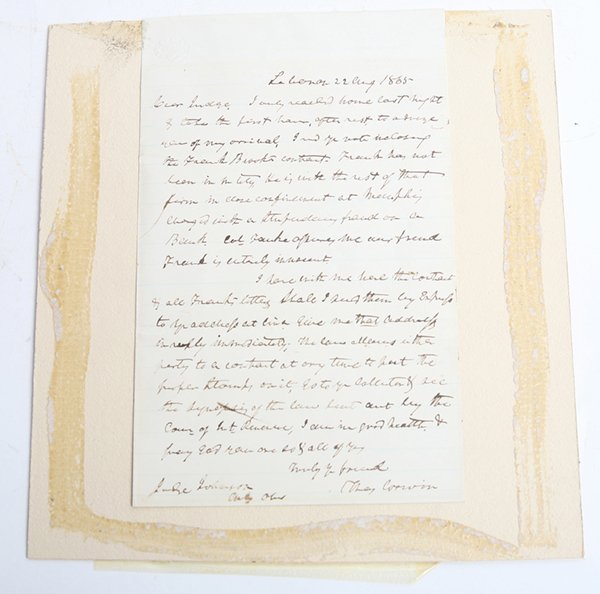 Lebanon 22 Aug 1865
Dear Judge, I only reached home last night
& take the first hour, after rest to advise
you of my arrival, I find yr note inclosing
the Frank Brooks contract. Frank has not
been in N. City He is with the rest of that
firm in close confinement at Memphis
charged with a stupendous fraud on a
Bank, Col. assures me our friend
Frank is entirely innocent
I have with me here the contract
& all Frank's letters Shall I send them by Express
to yr address at Give me that address
immediately, The law allows either
party to a contract at any time to put the
proper stamps on it, Go to yr Collector & see
the of the law sent out by the
Comr of Int Revenue, I am in good health, &
pray God you are so & all of yrs
Truly yr friend
Judge Johnson
Ohio
Thos Corwin